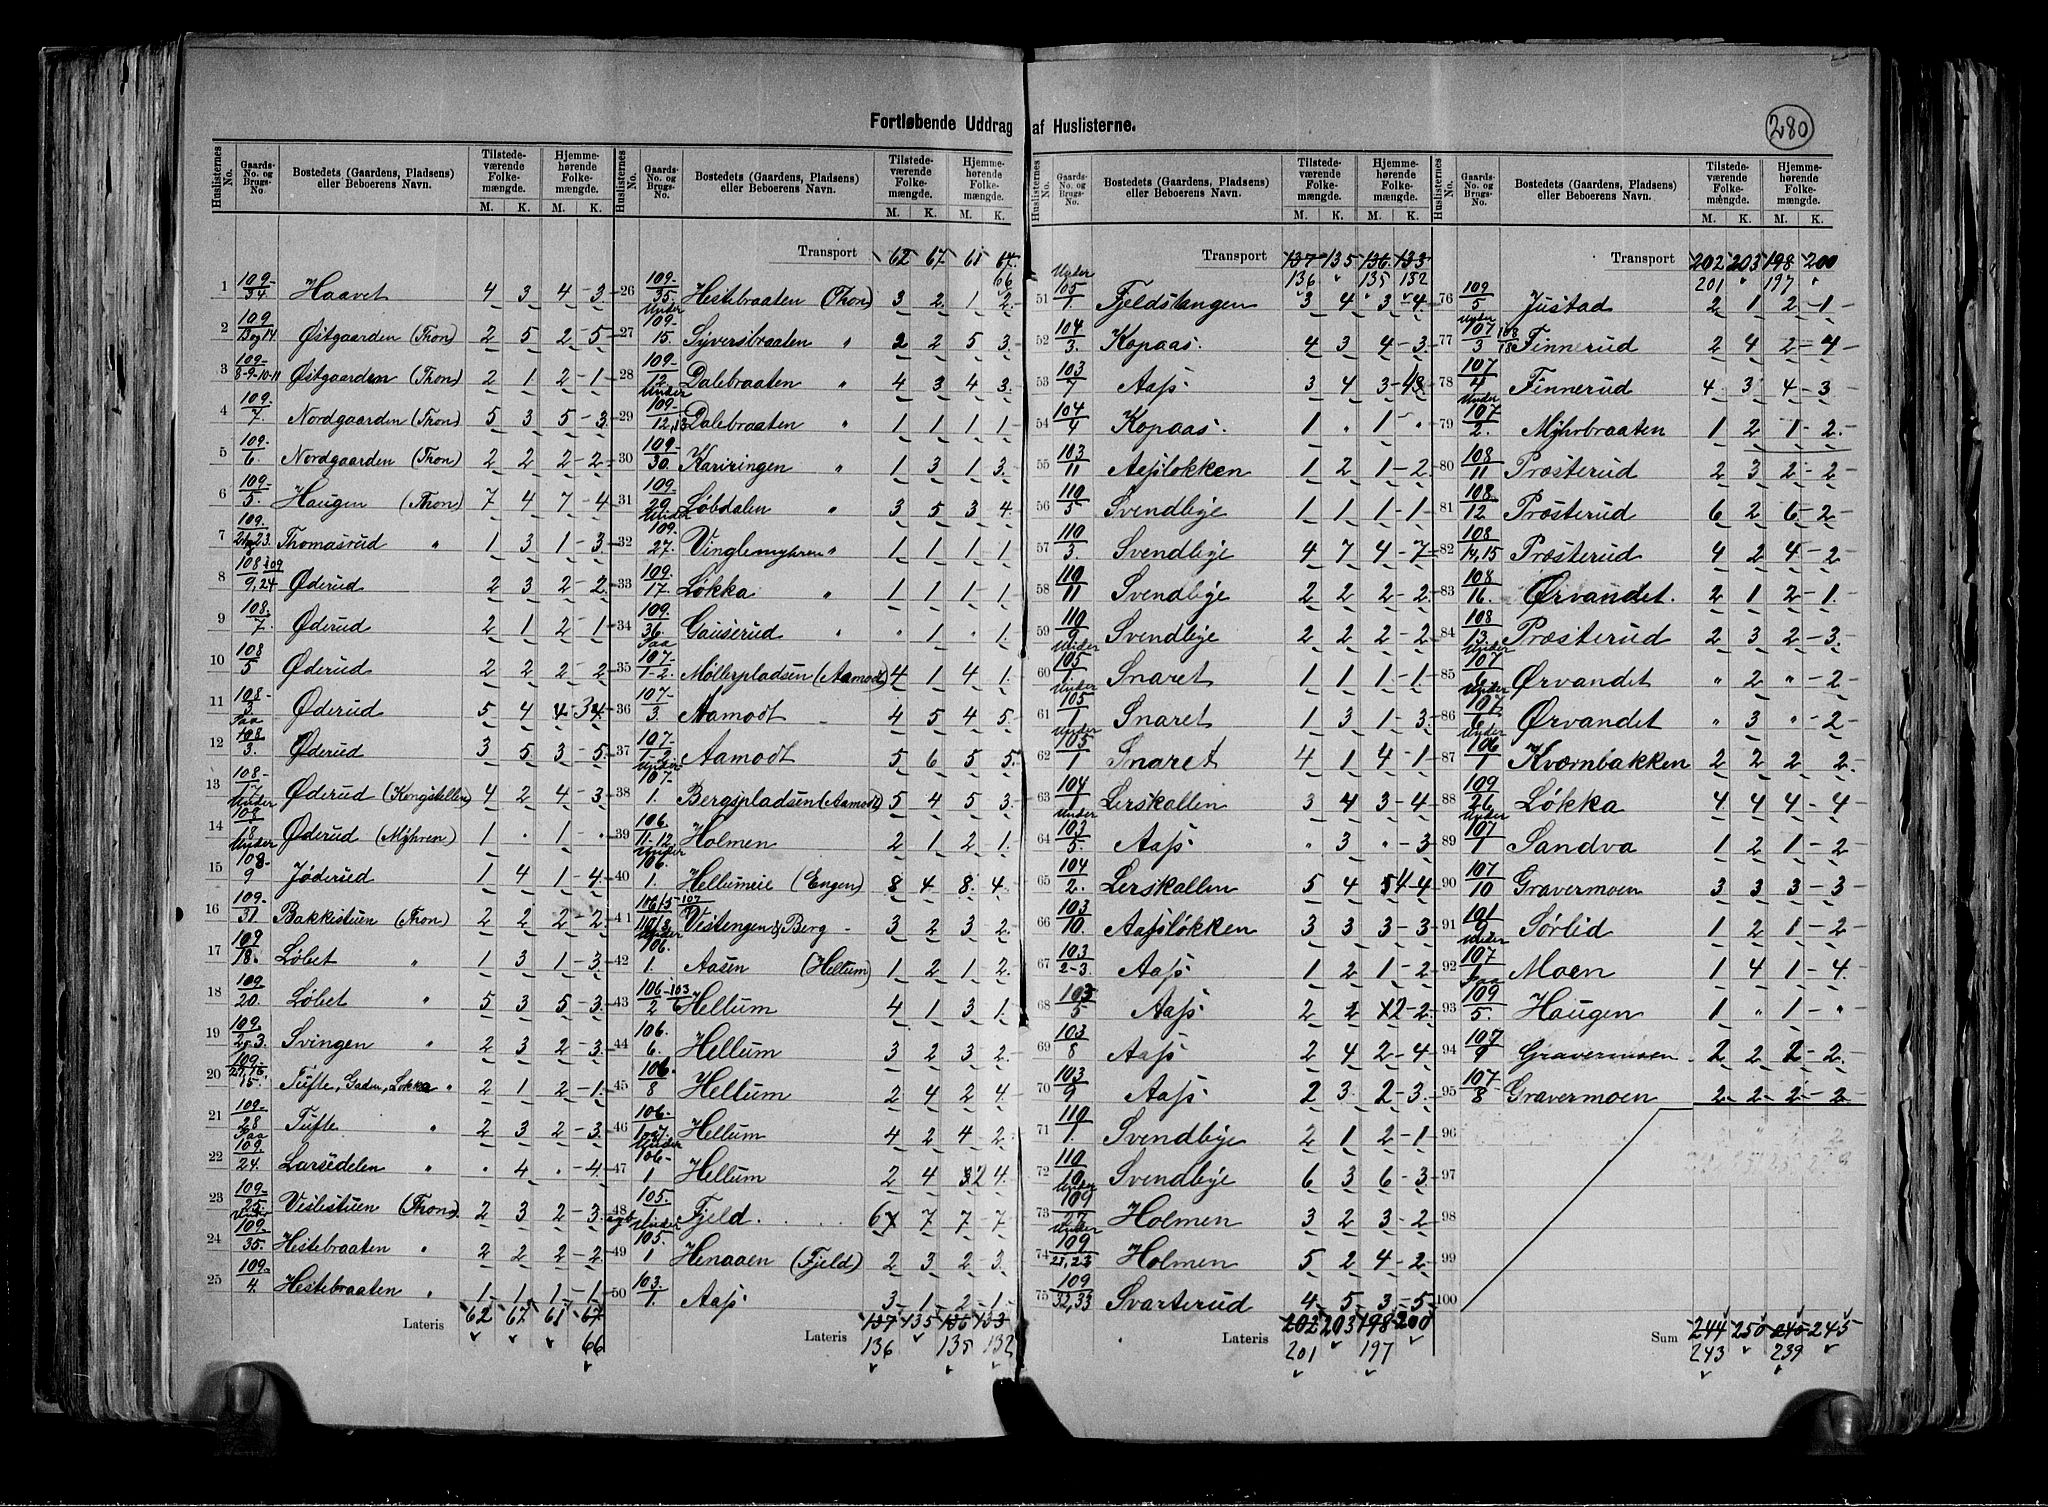 280
Fortløbende Uddrag af Huslisterne.
Huslisternes No. | Gaards-No. og Brugs-No. | Bostedets (Gaardens, Pladsens) eller Beboerens Navn. | Tilstedeværende Folkemængde. M. K. | Hjemmehørende Folkemængde. M. K.
1 109/34 Haavet 4 3 4 3
2 109/13og14 Østgaarden (Thon) 2 5 2 5
3 109/8-9-10-11 Østgaarden (Thon) 2 1 2 1
4 109/7 Nordgaarden (Thon) 5 3 5 3
5 109/6 Nordgaarden (Thon) 2 2 2 2
6 109/5 Haugen (Thon) 7 4 7 4
7 109/ Thomasrud " 1 3 1 3
8 108/9, 109/24 Øderud 2 3 2 2
9 108/7 Øderud 2 1 2 1
10 108/5 Øderud 2 2 2 2
11 108/3 Øderud 5 4 4 34
12 Paa 108/3 Øderud 3 5 3 5
13 108/17 Øderud (Kongstellen) 4 2 4 3
14 Under 108/18 Øderud (Myhren) 1 " 1 "
15 Under 108/9 Jøderud 1 4 1 4
16 109/31 Bakkistuen (Thon) 2 2 2 2
17 109/18 Løbet " 1 3 1 3
18 109/20 Løbet " 5 3 5 3
19 109/2-3 Svingen " 2 3 2 3
20 109/ Tufte, Gaden, Løkka " 2 1 2 1
21 109/28 Tufte " 2 3 2 3
22 Paa 109/24 Larsedelen " " 4 " 4
23 109/25 Veslestuen (Thon) 2 3 2 3
24 Under 109/35 Hestebraaten " 2 2 2 2
25 109/4 Hestebraaten " 1 1 1 1
Lateris 62 67 61 67
66
Transport 62 67 61 67
66
26 109/35 Hestebraaten (Thon) 3 2 1 2
27 Under 109/15 Syversbraaten " 2 2 5 3
28 109/12 Dalebraaten " 4 3 4 3
29 Under 109/12,13 Dalebraaten " 1 1 1 1
30 109/30 Kariringen " 1 3 1 3
31 109/29 Løbdalen " 3 5 3 4
32 Under 109/27 Vinglemyhren " 1 1 1 1
33 109/17 Løkka " 1 1 1 1
34 109/36 Gauserud " " 1 " 1
35 Paa 107/1-2 Møllerpladsen (Aamodt) 4 1 4 1
36 107/3 Aamodt 4 5 4 5
37 107/1-2 Aamodt 5 6 5 5
38 Under 107/1 Bergspladsen (Aamodt) 5 4 5 3
39 106/11-12 Holmen 2 1 2 1
40 Under 106/1 Hellumeie (Engen) 8 4 8 4
41 106/5-107 Vestengen & Berg 3 2 3 2
42 Under 106/1 Aasen (Hellum) 1 2 1 2
43 106/2-103/6 Hellum 4 1 3 1
44 106/6 Hellum 3 2 3 2
45 106/8 Hellum 2 4 2 4
46 106/ Hellum 4 2 4 2
47 Under 106/1 Hellum 2 4 32 4
48 105/1 Fjeld 67 7 7 7
49 Under 105/1 Henaaen (Fjeld) 2 3 2 3
50 103/1 Aas 3 1 2 1
Lateris 137 135 136 133
136 135 132
Transport 137 135 136 133
136 " 135 132
51 Under 105/1 Fjeldstangen 3 4 3 4
52 104/3 Kopaas. 4 3 4 3
53 103/7 Aas 3 4 3 43
54 104/4 Kopaas. 1 " 1 "
55 103/11 Aasløkken 1 2 1 2
56 110/5 Svendbye 1 1 1 1
57 110/3 Svendbye 4 7 4 7
58 110/11 Svendbye 2 2 2 2
59 110/9 Svendbye 2 2 2 2
60 Under 105/1 Snaret 1 1 1 1
61 Under 105/1 Snaret 1 3 1 3
62 Under 105/1 Snaret 4 1 4 1
63 104/1 Lerskallen 3 4 3 4
64 Under 103/5 Aas " 3 " 3
65 104/2 Lerskallen 5 4 54 4
66 103/10 Aasløkken 3 3 3 3
67 103/2-3 Aas 1 2 1 2
68 103/5 Aas 2 2 2 2
69 103/8 Aas 2 4 2 4
70 103/9 Aas 2 3 2 3
71 110/1 Svendbye 2 1 2 1
72 110/10 Svendbye 6 3 6 3
73 Under 109/27 Holmen 3 2 3 2
74 Under 109/21,23 Holmen 5 2 4 2
75 109/32,33 Svarterud 4 5 3 5
Lateris 202 203 198 200
201 197
Transport 202 203 198 200
201 " 197 "
76 109/5 Justad 2 1 2 1
77 Under 107/3 108/18 Finnerud 2 4 2 4
78 107/4 Finnerud 4 3 4 3
79 Under 107/2 Myhrbraaten 1 2 1 2
80 108/11 Præsterud 2 3 2 2
81 108/12 Præsterud 6 2 6 2
82 108/14,15 Præsterud 4 2 4 2
83 108/16 Ørvandet. 2 1 2 1
84 108/13 Præsterud 2 3 2 3
85 Under 107/6 Ørvandet " 2 " 2
86 Under 107/6 Ørvandet " 3 " 2
87 Under 106/1 Kværnbakken 2 2 2 2
88 109/26 Løkka 4 4 4 4
89 Under 107/1 Sandva 1 2 1 2
90 107/10 Gravermoen 3 3 3 3
91 101/9 Sørlid 1 2 1 2
92 Under 107/1 Moen 1 4 1 4
93 Paa 109/5 Haugen 1 " 1 "
94 107/9 Gravermoen 2 2 2 2
95 107/8 Gravermoen 2 2 2 2
96
97
98
99
100
Sum 244 250 240 245
243 239